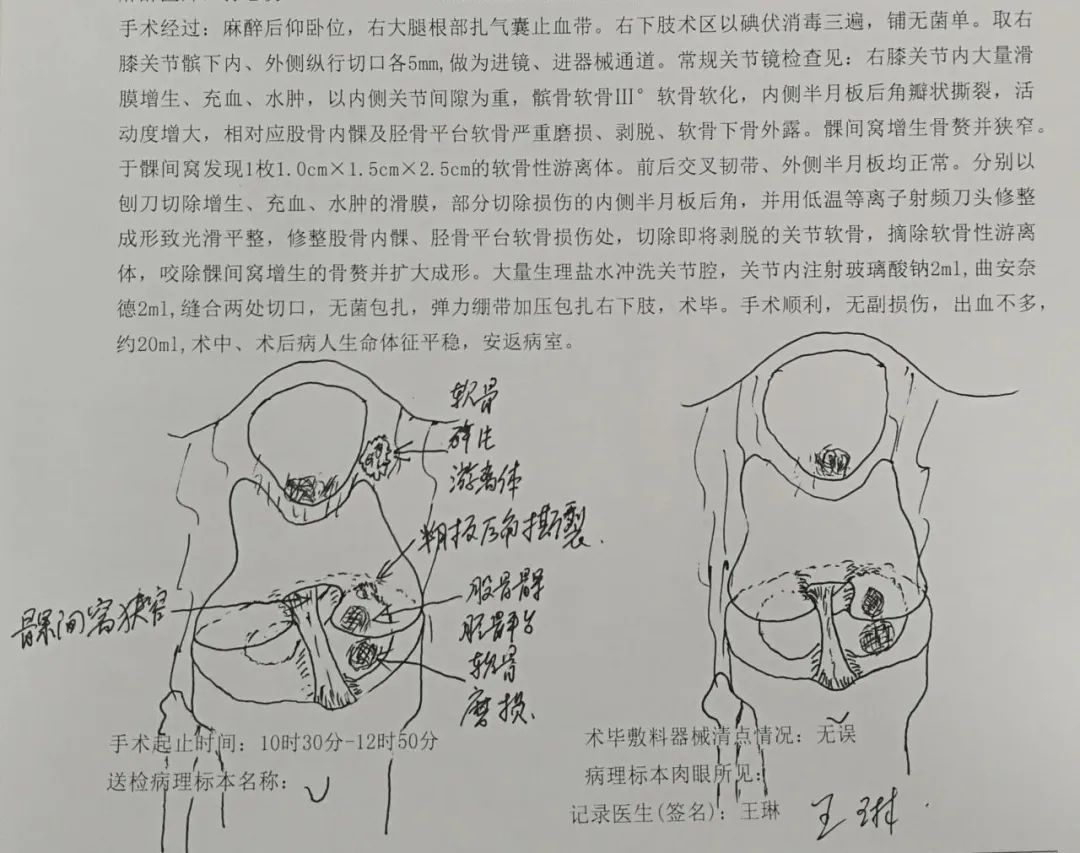 手术经过：麻醉后仰卧位，右大腿根部扎气囊止血带。右下肢术区以碘伏消毒三遍，铺无菌单。取右
膝关节髌下内、外侧纵行切口各5mm,做为进镜、进器械通道。常规关节镜检查见：右膝关节内大量滑
膜增生、充血、水肿，以内侧关节间隙为重，髌骨软骨Ⅲ°软骨软化，内侧半月板后角瓣状撕裂，活
动度增大，相对应股骨内髁及胫骨平台软骨严重磨损、剥脱、软骨下骨外露。髁间窝增生骨赘并狭窄。
于髁间窝发现1枚1.0cm×1.5cm×2.5cm的软骨性游离体。前后交叉韧带、外侧半月板均正常。分别以
刨刀切除增生、充血、水肿的滑膜，部分切除损伤的内侧半月板后角，并用低温等离子射频刀头修整
成形致光滑平整，修整股骨内髁、胫骨平台软骨损伤处，切除即将剥脱的关节软骨，摘除软骨性游离
体，咬除髁间窝增生的骨赘并扩大成形。大量生理盐水冲洗关节腔，关节内注射玻璃酸钠2ml,曲安奈
德2ml,缝合两处切口，无菌包扎，弹力绷带加压包扎右下肢，术毕。手术顺利，无副损伤，出血不多，
约20ml,术中、术后病人生命体征平稳，安返病室。
软骨
碎片
游离体
半月板后角撕裂.
髁间窝狭窄
股骨髁
胫骨平台
软骨
磨损.
手术起止时间：10时30分-12时50分
术毕敷料器械清点情况：无误
送检病理标本名称：
病理标本肉眼所见：
记录医生(签名)：王琳
王琳.